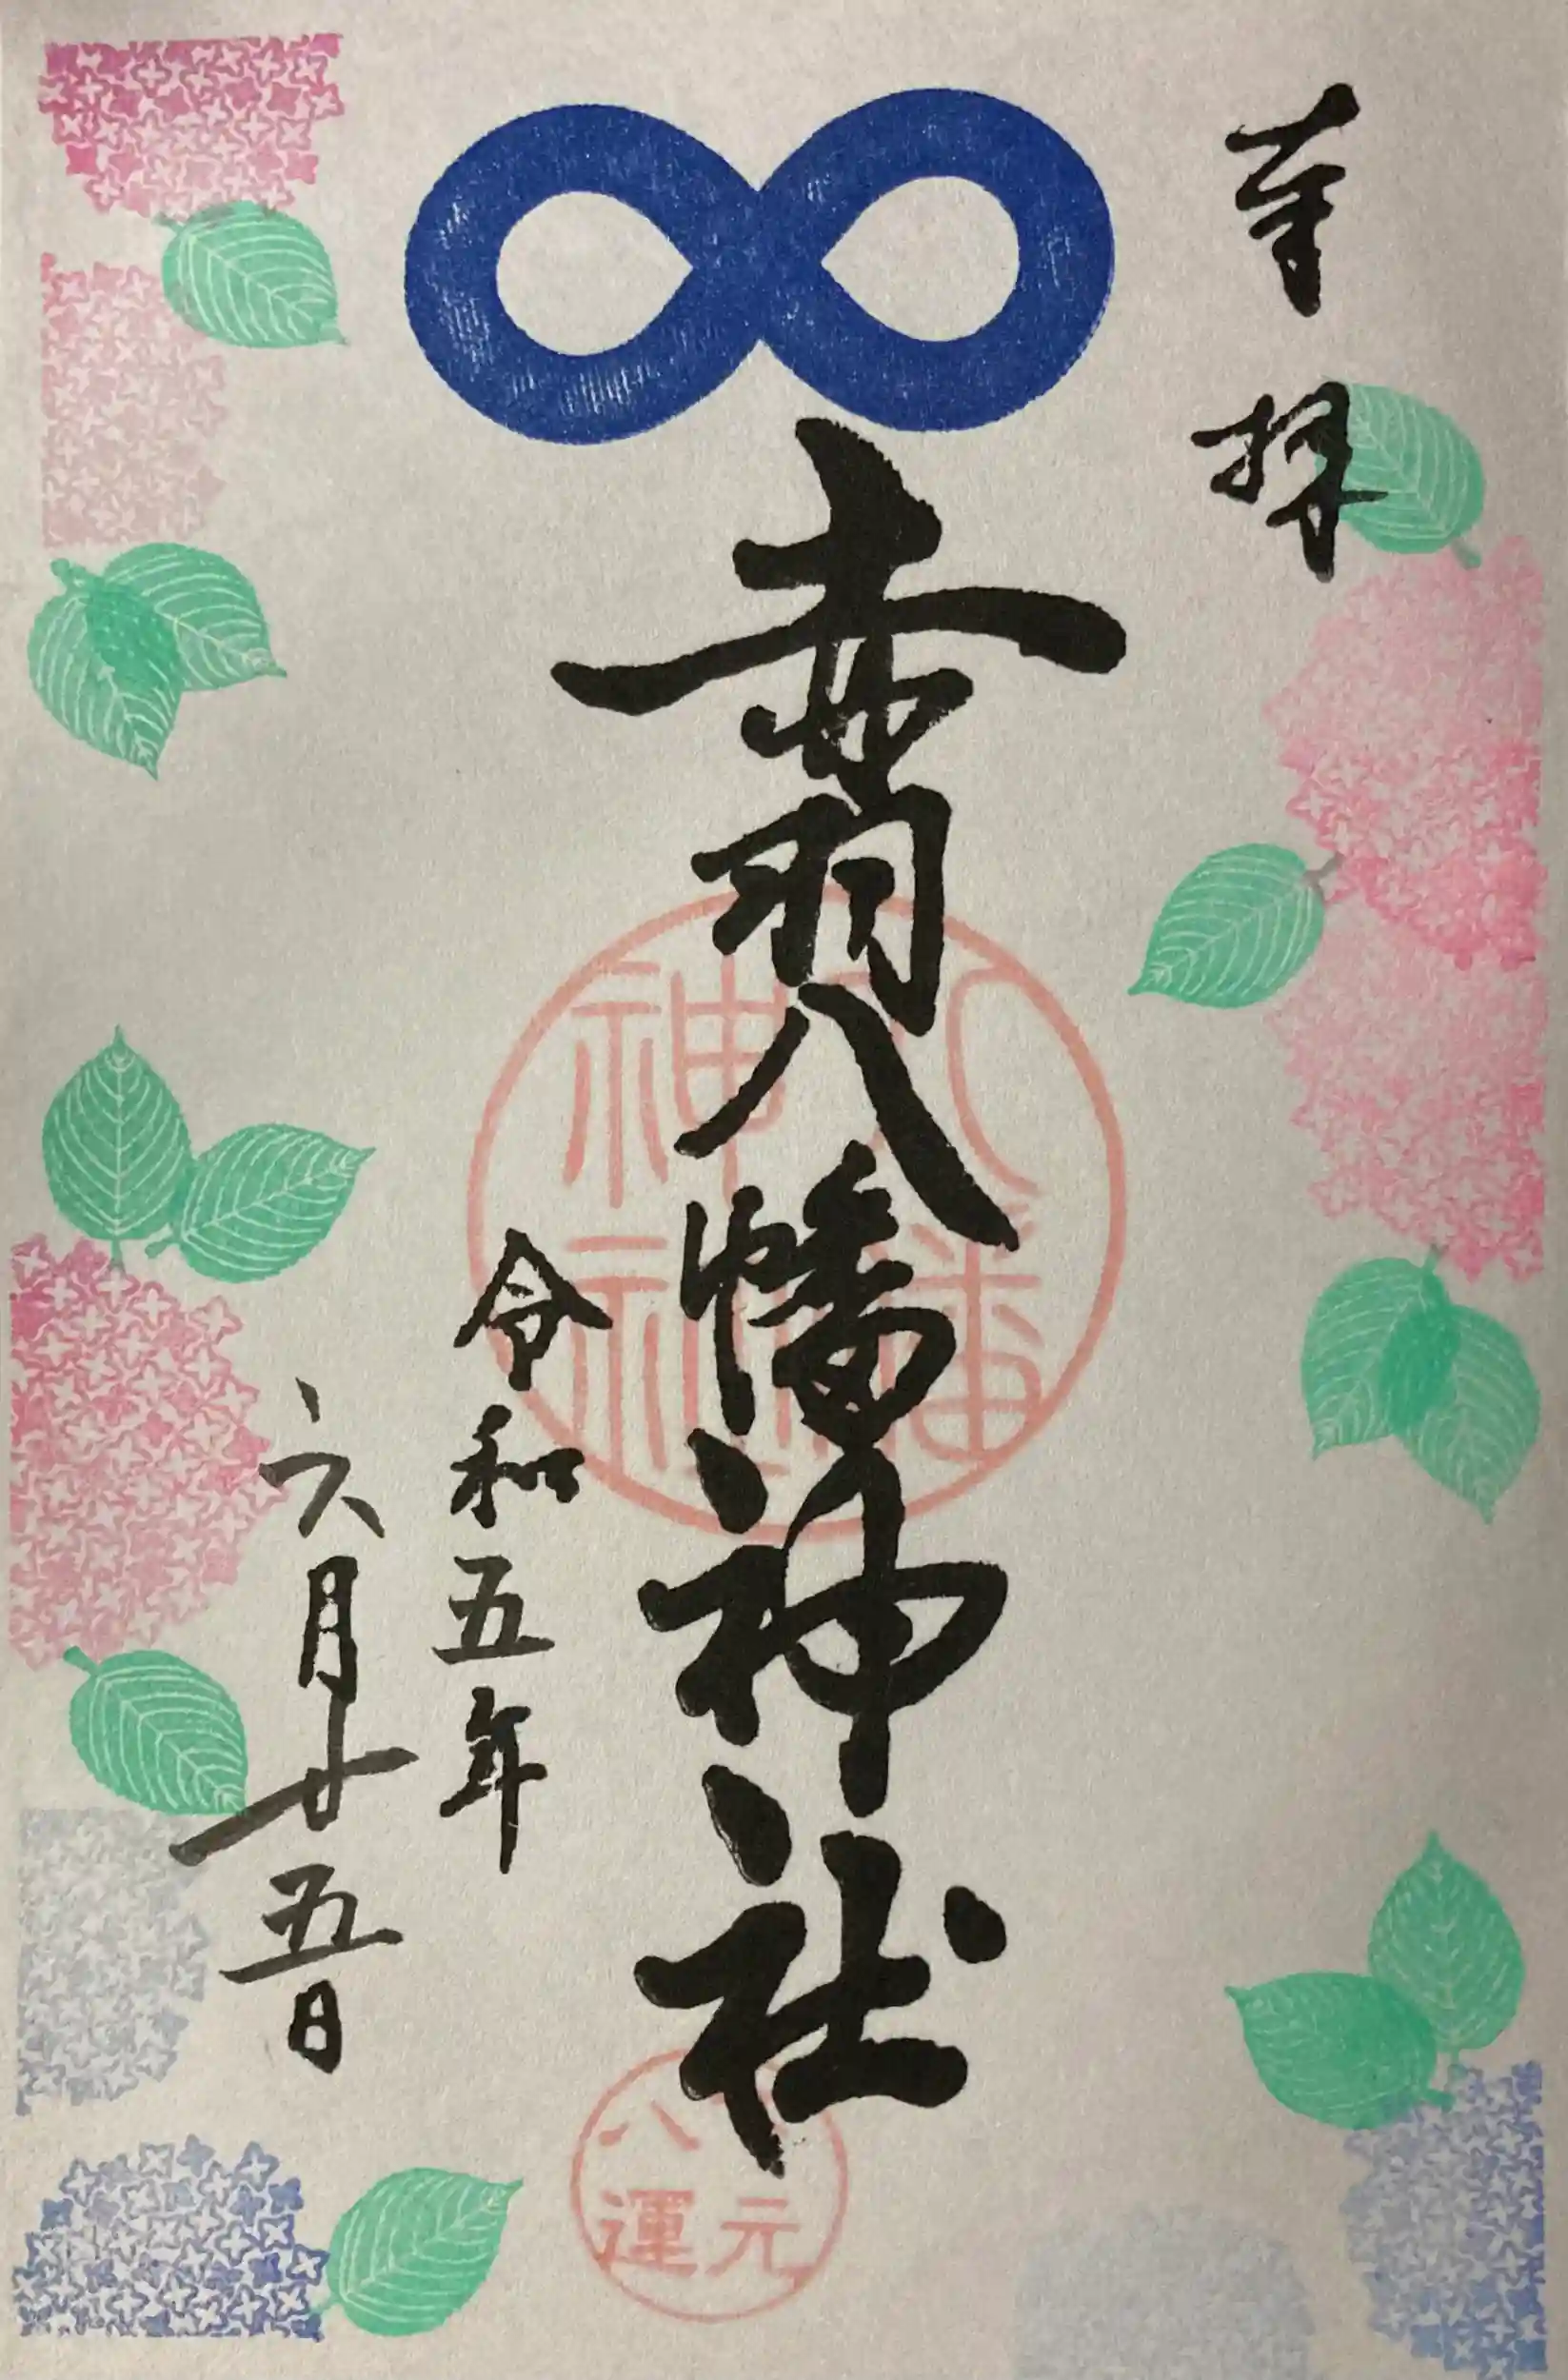 奉拝
赤羽八幡神社
令和五年
六月廿五日
八幡
神社
元
八運